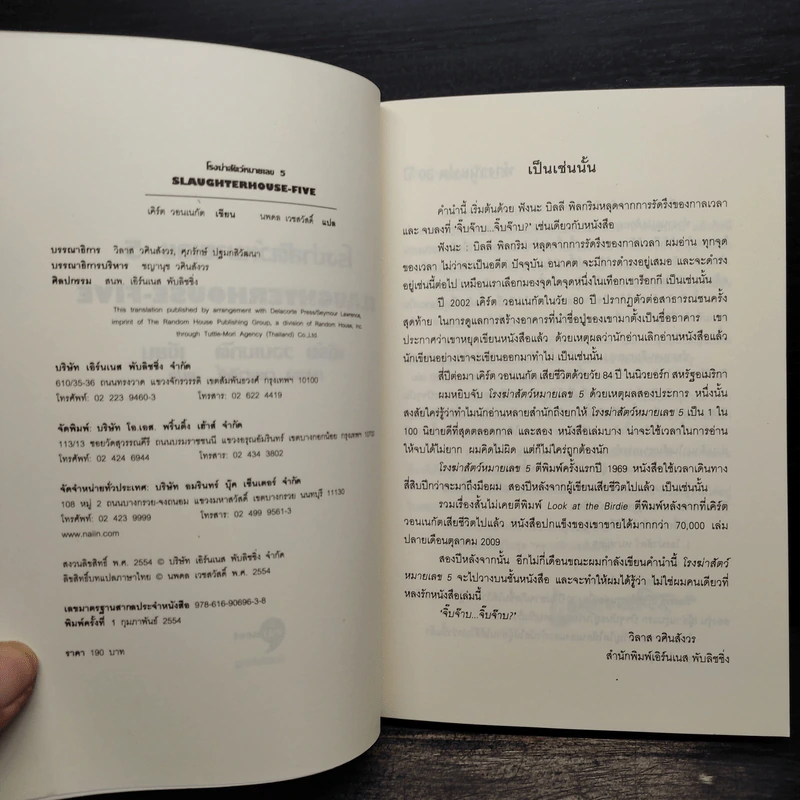 โรงฆ่าสัตว์หมายเลข 5
SLAUGHTERHOUSE-FIVE
เคิร์ต วอนเนกัต เขียน นพดล เวชสวัสดิ์ แปล
บรรณาธิการ วิลาส วศินสังวร, ศุภรักษ์ ปฐมกสิวัฒนา
บรรณาธิการบริหาร ชญานุช วศินสังวร
ศิลปกรรม สนพ. เอิร์นเนส พับลิชชิ่ง
This translation published by arrangement with Delacorte Press/Seymour Lawrence,
imprint of The Random House Publishing Group, a division of Random House, Inc
through Tuttle-Mori Agency (Thailand) Co.,Ltd.
บริษัท เอิร์นเนส พับลิชชิ่ง จำกัด
610/35-36 ถนนทรงวาด แขวงจักรวรรดิ เขตสัมพันธวงศ์ กรุงเทพฯ 10100
โทรศัพท์: 02 223 9460-3 โทรสาร: 02 622 4419
จัดพิมพ์: บริษัท โอ.เอส. พริ้นติ้ง เฮ้าส์ จำกัด
113/13 ซอยวัดสุวรรณคีรี ถนนบรมราชชนนี แขวงอรุณอัมรินทร์ เขตบางกอกน้อย กรุงเทพฯ 10700
โทรศัพท์: 02 424 6944 โทรสาร: 02 434 3802
จัดจำหน่ายทั่วประเทศ: บริษัท อมรินทร์ บุ๊ค เซ็นเตอร์ จำกัด
108 หมู่ 2 ถนนบางกรวย-จงถนอม แขวงมหาสวัสดิ์ เขตบางกรวย นนทบุรี 11130
โทรศัพท์: 02 423 9999 โทรสาร: 02 499 9561-3
www.naiin.com
สงวนลิขสิทธิ์ พ.ศ. 2554 © บริษัท เอิร์นเนส พับลิชชิ่ง จำกัด
ลิขสิทธิ์บทแปลภาษาไทย © นพดล เวชสวัสดิ์ พ.ศ. 2554
เลขมาตรฐานสากลประจำหนังสือ 978-616-90696-3-8
พิมพ์ครั้งที่ 1 กุมภาพันธ์ 2554
ราคา 190 บาท
เป็นเช่นนั้น
คำนำนี้ เริ่มต้นด้วย ฟังนะ บิลลี พิลกริมหลุดจากการรัดรึงของกาลเวลา
และ จบลงที่ 'จิ๊บจ๊าบ...จิ๊บจ๊าบ?' เช่นเดียวกับหนังสือ
ฟังนะ : บิลลี พิลกริม หลุดจากการรัดรึงของกาลเวลา ผมอ่าน ทุกจุด
ของเวลา ไม่ว่าจะเป็นอดีต ปัจจุบัน อนาคต จะมีการดำรงอยู่เสมอ และจะดำรง
อยู่เช่นนี้ต่อไป เหมือนเราเลือกมองจุดใดจุดหนึ่งในเทือกเขาร็อกกี เป็นเช่นนั้น
ปี 2002 เคิร์ต วอนเนกัตในวัย 80 ปี ปรากฏตัวต่อสาธารณชนครั้ง
สุดท้าย ในการดูแลการสร้างอาคารที่นำชื่อปู่ของเขามาตั้งเป็นชื่ออาคาร เขา
ประกาศว่าเขาหยุดเขียนหนังสือแล้ว ด้วยเหตุผลว่านักอ่านเลิกอ่านหนังสือแล้ว
นักเขียนอย่างเขาจะเขียนออกมาทำไม เป็นเช่นนั้น
สี่ปีต่อมา เคิร์ต วอนเนกัต เสียชีวิตด้วยวัย 84 ปี ในนิวยอร์ก สหรัฐอเมริกา
ผมหยิบจับ โรงฆ่าสัตว์หมายเลข 5 ด้วยเหตุผลสองประการ หนึ่งนั้น
สงสัยใคร่รู้ว่าทำไมนักอ่านหลายสำนักถึงยกให้ โรงฆ่าสัตว์หมายเลข 5 เป็น 1 ใน
100 นิยายดีที่สุดตลอดกาล และสอง หนังสือเล่มบาง น่าจะใช้เวลาในการอ่าน
ให้จบได้ไม่ยาก ผมคิดไม่ผิด แต่ก็ไม่ใคร่ถูกต้องนัก
โรงฆ่าสัตว์หมายเลข 5 ตีพิมพ์ครั้งแรกปี 1969 หนังสือใช้เวลาเดินทาง
สี่สิบปีกว่าจะมาถึงมือผม สองปีหลังจากผู้เขียนเสียชีวิตไปแล้ว เป็นเช่นนั้น
รวมเรื่องสั้นไม่เคยตีพิมพ์ Look at the Birdie ตีพิมพ์หลังจากที่เคิร์ต
วอนเนกัตเสียชีวิตไปแล้ว หนังสือปกแข็งของเขาขายได้มากกว่า 70,000 เล่ม
ปลายเดือนตุลาคม 2009
สองปีหลังจากนั้น อีกไม่กี่เดือนขณะผมกำลังเขียนคำนำนี้ โรงฆ่าสัตว์
หมายเลข 5 จะไปวางบนชั้นหนังสือ และจะทำให้ผมได้รู้ว่า ไม่ใช่ผมคนเดียวที่
หลงรักหนังสือเล่มนี้
'จิ๊บจ๊าบ...จิ๊บจ๊าบ?'
วิลาส วศินสังวร
สำนักพิมพ์เอิร์นเนส พับลิชชิ่ง